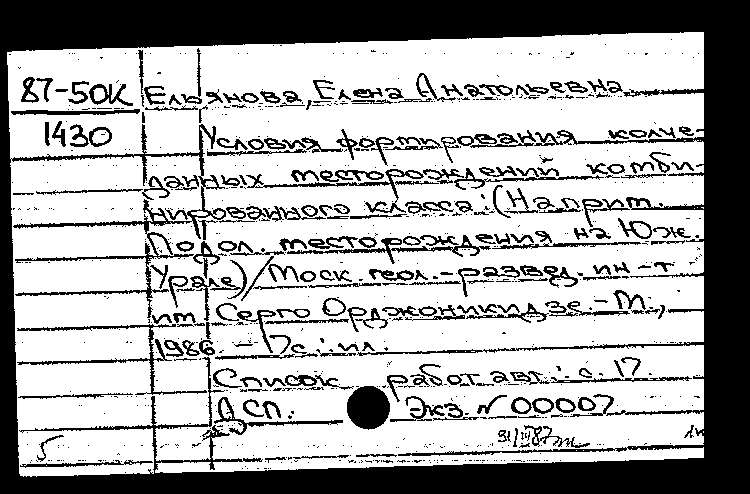 87-50К Ельянова, Елена Анатольевна.
1430 Условия формирования колче-
данных месторождений комби-
нированного класса: (На прим.
Подол. месторождения на Юж.
Урале)/Моск. геол.-развед. ин-т
им Серго Орджоникидзе.-М.,
1986. - 17с.: ил.
Список работ авт.: с. 17.
АСП. Экз. № 00007.
5 31/III87